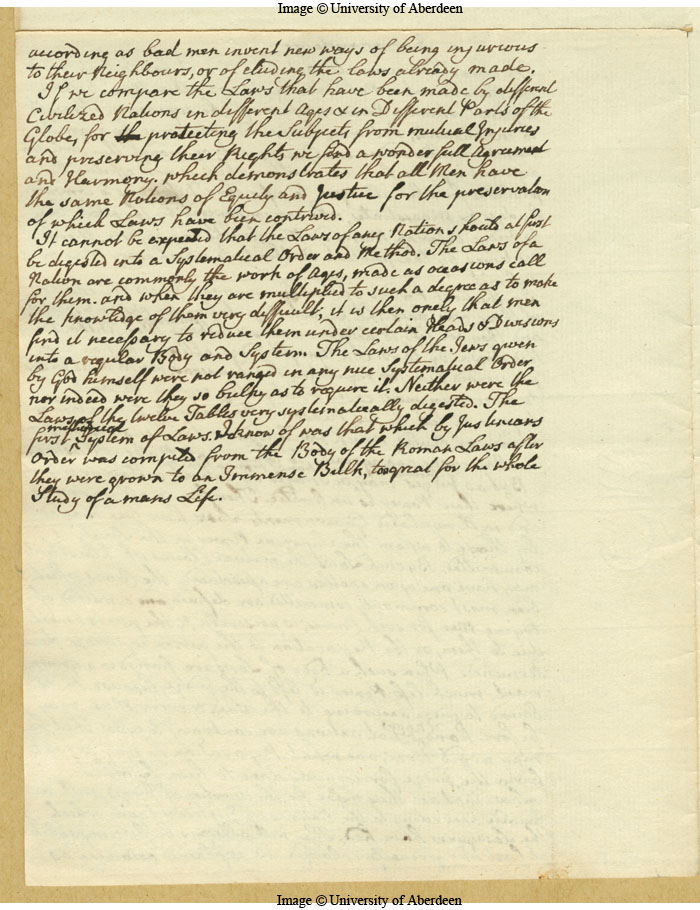 Image © University of Aberdeen
according as bad men invent new ways of being injurious
to their Neighbours, or of eluding the laws already made.
If we compare the Laws that have been made by different
Civilized Nations in different Ages & in Different Parts of the
Globe, for the protecting the Subjects from mutual Injuries
and preserving their Rights we find a wonderfull Agreement
and Harmony. which demonstrates that all Men have
the same Notions of Equity and Justice for the preservation
of which Laws have been contrived.
It cannot be expected that the Laws of any Nation should at first
be digested into a Systematical Order and Method. The Laws of a
Nation are commonly the work of Ages, made as occasions call
for them. and when they are multiplied to such a degree as to make
the knowledge of them very difficult, it is then onely that men
find it necessary to reduce them under certain Heads & Divisions
into a regular Body and System. The Laws of the Jews given
by God himself were not ranged in any nice Systematical Order
nor indeed were they so bulky as to require it. Neither were the
Laws of the twelve Tables very systematically digested. The
first System of Laws I know of was that which by Justinians
Order was compiled from the Body of the Roman Laws after
they were grown to an Immense Bulk, too great for the whole
Study of a mans Life.
Image © University of Aberdeen